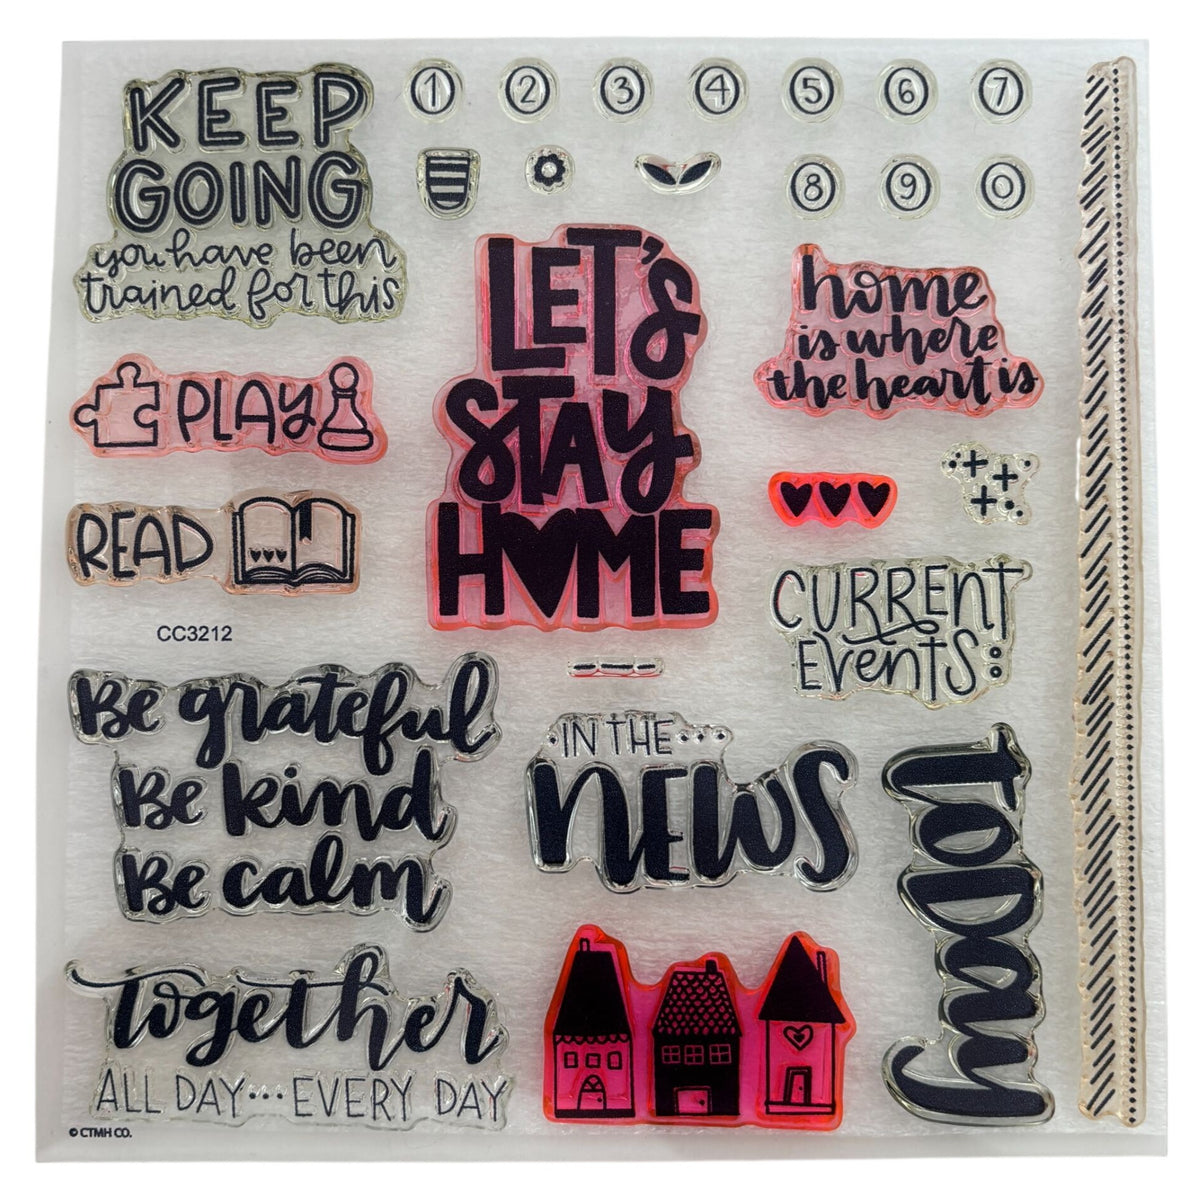 KEEP
GOING
you have been
trained for this
1 2 3 4 5 6 7
8 9 0
LET'S
STAY
HOME
home
is where
the heart is
PLAY
READ
CC3212
CURRENT
EVENTS:
Be grateful
Be kind
Be calm
IN THE...
NEWS
TODAY
Together
ALL DAY...EVERY DAY
© CTMH CO.